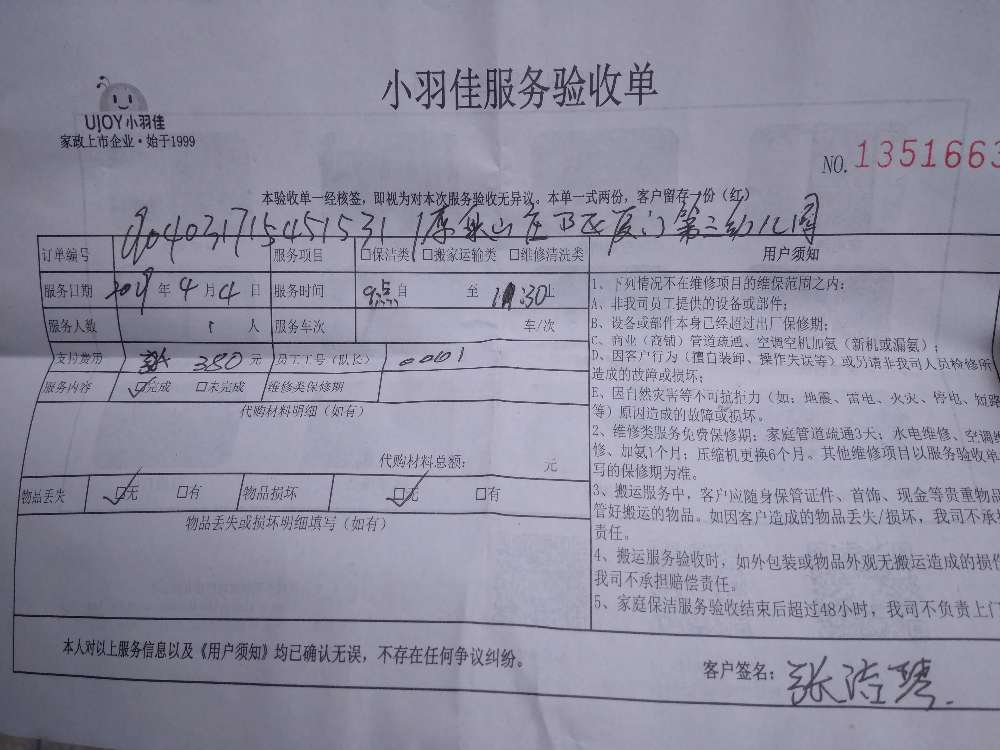 小羽佳服务验收单
UJOY小羽佳
家政上市企业·始于1999
NO. 1351663
本验收单一经核签，即视为对本次服务验收无异议。本单一式两份，客户留存一份（红）
厦门第三幼儿园
订单编号 服务项目 □保洁类 □搬家运输类 □维修清洗类
服务日期 年 4 月 4 日 服务时间 9点 自 至 11:30止
服务人数 1 人 服务车次 车/次
支付费用 380 元 员工工号（队长）
服务内容 ☑完成 □未完成 维修类保修期
代购材料明细（如有）
代购材料总额： 元
物品丢失 ☑无 □有 物品损坏 ☑无 □有
物品丢失或损坏明细填写（如有）
用户须知
1、下列情况不在维修项目的维保范围之内：
A、非我司员工提供的设备或部件；
B、设备或部件本身已经超过出厂保修期；
C、商业（商铺）管道疏通、空调空机加氨（新机或漏氨）；
D、因客户行为（擅自装卸、操作失误等）或另请非我司人员检修所
造成的故障或损坏；
E、因自然灾害等不可抗拒力（如：地震、雷电、火灾、停电、短路
等）原因造成的故障或损坏。
2、维修类服务免费保修期：家庭管道疏通3天；水电维修、空调维
修、加氨1个月；压缩机更换6个月。其他维修项目以服务验收单
写的保修期为准。
3、搬运服务中，客户应随身保管证件、首饰、现金等贵重物品
管好搬运的物品。如因客户造成的物品丢失/损坏，我司不承担
责任。
4、搬运服务验收时，如外包装或物品外观无搬运造成的损伤
我司不承担赔偿责任。
5、家庭保洁服务验收结束后超过48小时，我司不负责上门
本人对以上服务信息以及《用户须知》均已确认无误，不存在任何争议纠纷。
客户签名：张洁琴